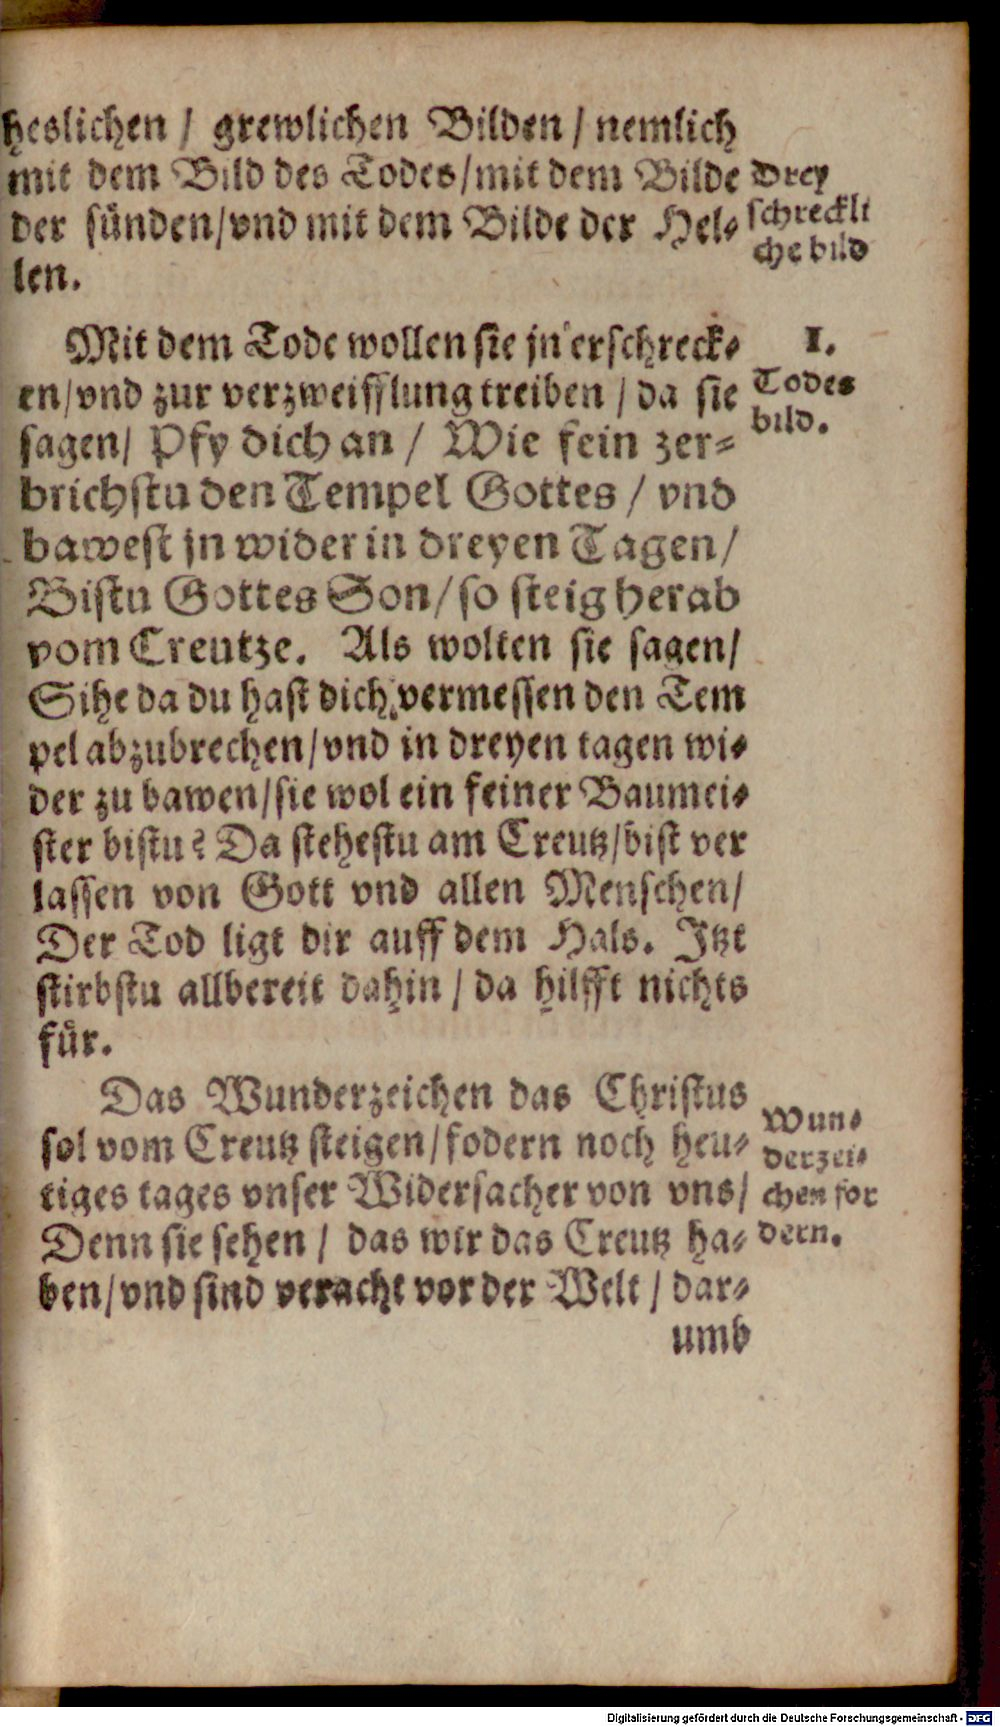 heslichen / grewlichen Bilden / nemlich
mit dem Bild des Todes/mit dem Bilde
der sünden/vnd mit dem Bilde der Hel-
len.
Drey
schreckli
che bild
Mit dem Tode wollen sie jn erschreck-
en/vnd zur verzweifflung treiben / da sie
sagen/ Pfy dich an / Wie fein zer-
brichstu den Tempel Gottes / vnd
bawest jn wider in dreyen Tagen/
Bistu Gottes Son/so steig herab
vom Creutze. Als wolten sie sagen/
Sihe da du hast dich vermessen den Tem
pel abzubrechen/vnd in dreyen tagen wi-
der zu bawen/sie wol ein feiner Baumei-
ster bistu? Da stehestu am Creutz/bist ver
lassen von Gott vnd allen Menschen/
Der Tod ligt dir auff dem Hals. Itzt
stirbstu allbereit dahin / da hilfft nichts
für.
I.
Todes
bild.
Das Wunderzeichen das Christus
sol vom Creutz steigen/fodern noch heu-
tiges tages vnser Widersacher von vns/
Denn sie sehen / das wir das Creutz ha-
ben/vnd sind veracht vor der Welt / dar-
umb
Wun-
derzei-
chen for
dern.
Digitalisierung gefördert durch die Deutsche Forschungsgemeinschaft - DFG